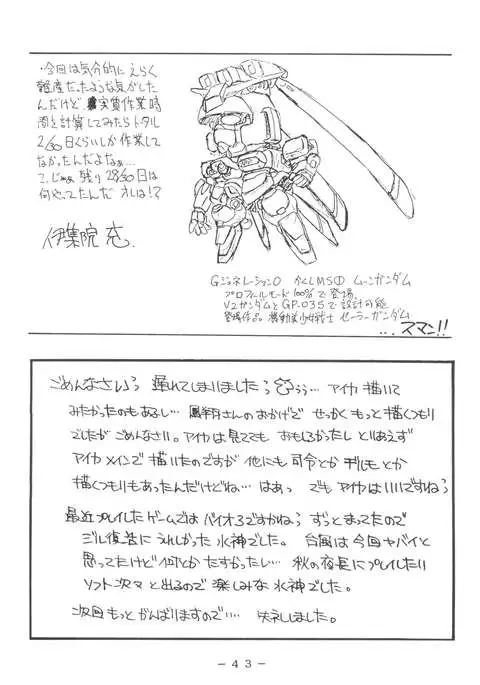 ・今回は気分的にえらく
難産だったような気がした
んだけど実質作業時
間を計算してみたらトータル
2/30日くらいしか作業して
なかったんだよなぁ…
て、じゃぁ残り28/30日は
何やってたんだオレは!?
伊集院 忘.
Gジェネレーション0 かくしMS① ムーンガンダム
プロフィールモード100%で登場.
V2ガンダムとGP-03Sで設計可能
登場作品. 機動美少女戦士 セーラーガンダム
...スマン!!
ごめんなさいっ 遅れてしまいましたっ うぅ… アイカ描いて
みたかったのもあるし… 鳳翔さんのおかげで せっかくもっと描くつもり
でしたが ごめんなさい。アイカは見ててもおもしろかったし とりあえず
アイカメインで描いたのですが 他にも司令とか デルモとか
描くつもりもあったんだけどね… はぁっ でもアイカはいいですねっ
最近プレイしたゲームではバイオ3ですかねっ ずっとまってたので
ジル復活にうれしかった水神でした。 台風は今回ヤバイと
思ってたけど 何とか たすかったい… 秋の夜長にプレイしたい
ソフト次々と出るので楽しみな水神でした。
次回もっとがんばりますので…. 失礼しました。
－43－